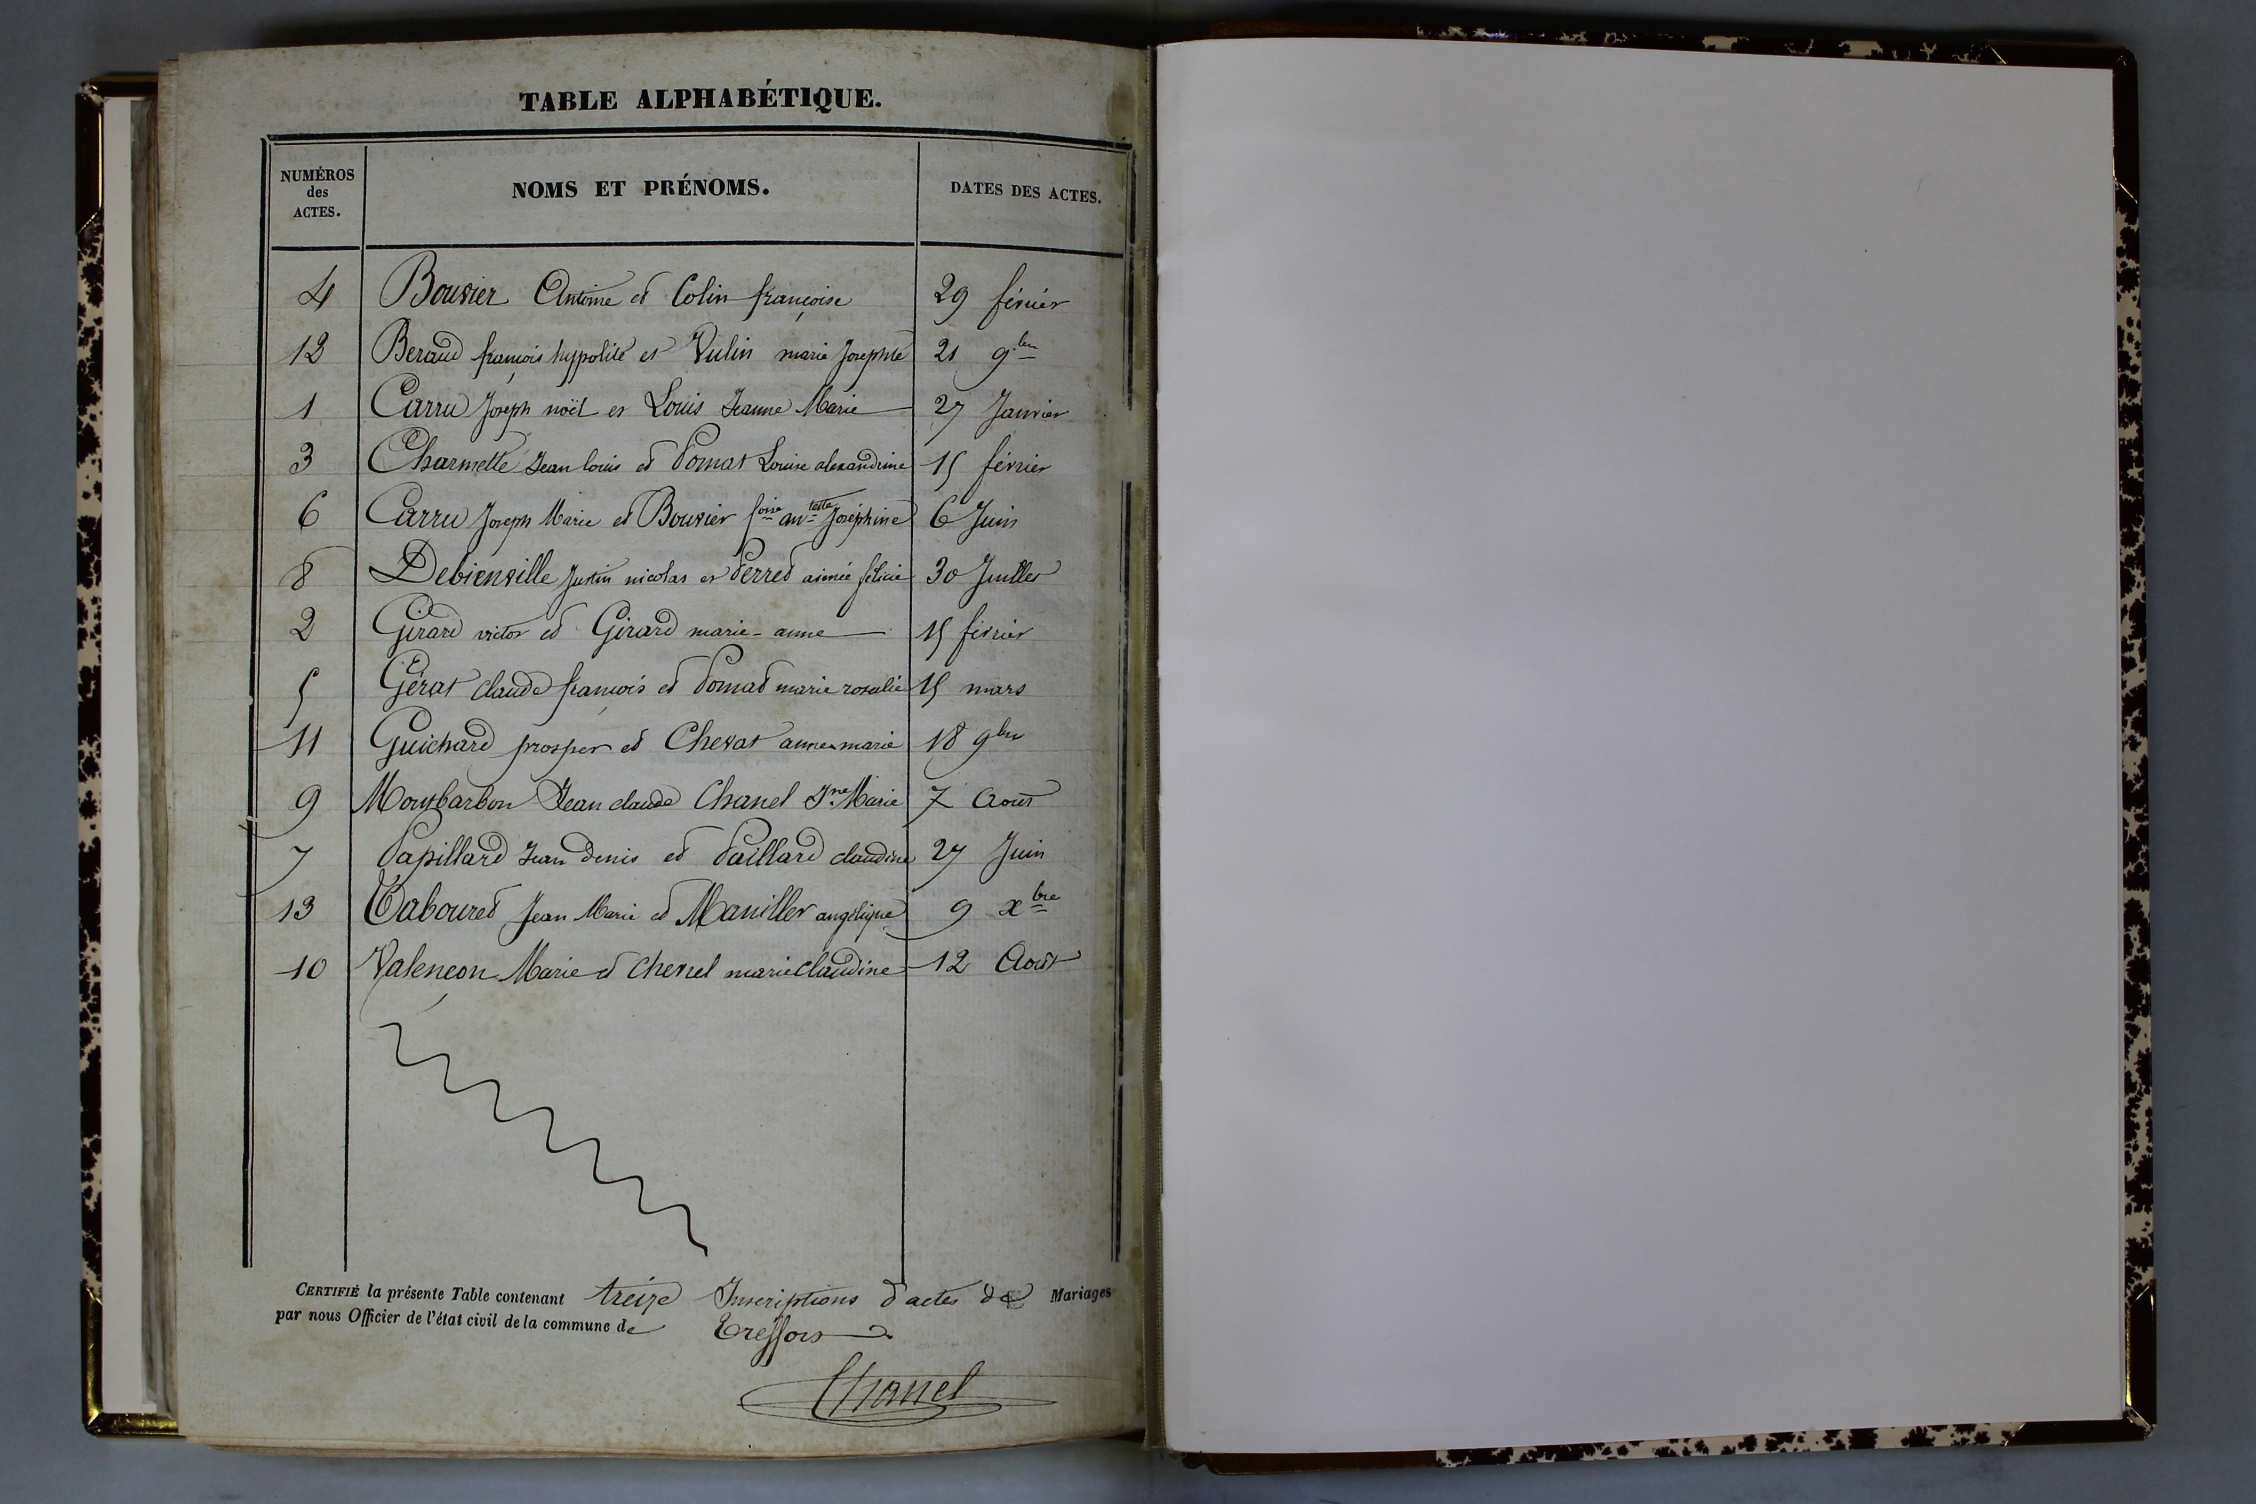 TABLE ALPHABÉTIQUE.
NUMÉROS
des
ACTES.
NOMS ET PRÉNOMS.
DATES DES ACTES.
4 Bouvier Antoine et Colin françoise 29 février
12 Beraud françois hyppolite et Vulin marie Josephte 21 9bre
1 Carru Joseph noël et Louis Jeanne Marie 27 Janvier
3 Charmette Jean louis et Pomat Louise alexandrine 15 février
6 Carru Joseph Marie et Bouvier foise antte Joséphine 6 Juin
8 Debienville Justin nicolas et Perret aimée félicie 30 Juillet
2 Girard victor et Girard marie-anne 15 février
5 Gérat claude françois et Pomat marie rosalie 15 mars
11 Guichard prosper et Chevat anne-marie 18 9bre
9 Montbarbon Jean claude Chanel Jne Marie 7 Aout
7 Papillard Jean Denis et Paillard claudine 27 Juin
13 Tabouret Jean Marie et Maniller angélique 9 xbre
10 Valençon Marie et Chevrel marie claudine 12 Août
CERTIFIÉ la présente Table contenant treize Inscriptions d'actes de Mariages
par nous Officier de l'état civil de la commune de Treffort
Chanel